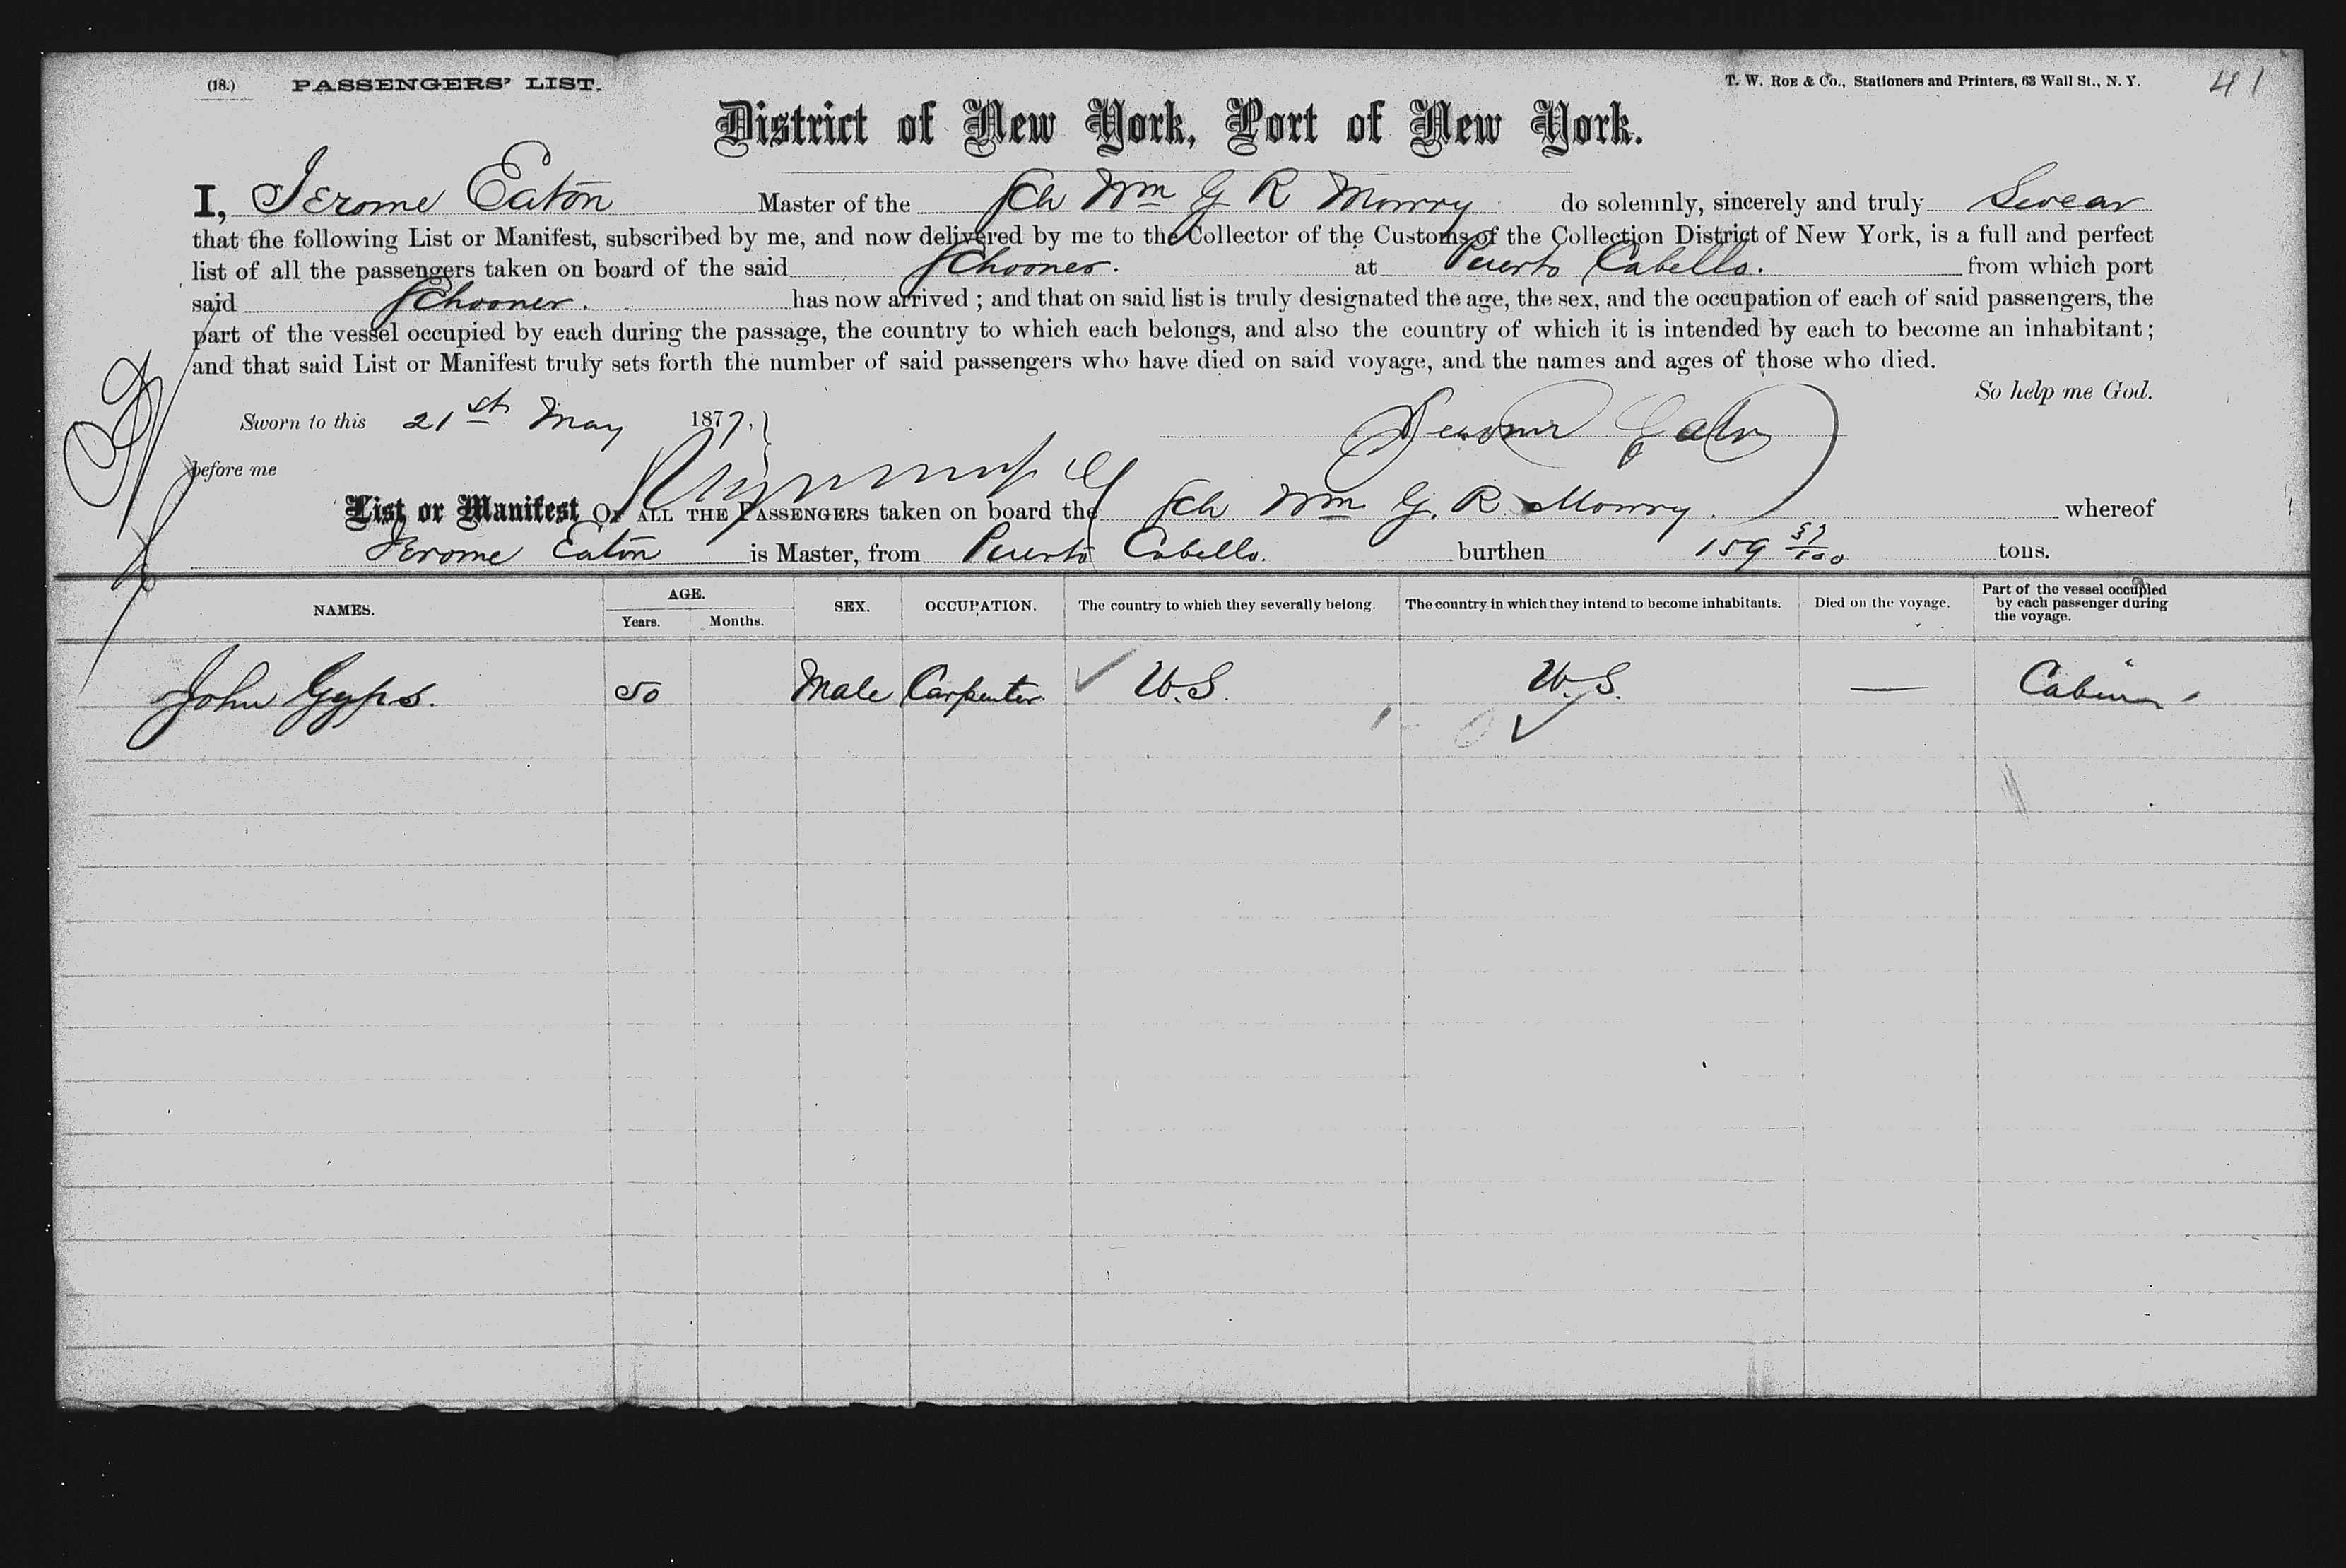 (18.) PASSENGERS' LIST. T. W. ROE & Co., Stationers and Printers, 63 Wall St., N. Y. 41
District of New York, Port of New York.
I, Jerome Eaton Master of the Sch Wm G R Mowry do solemnly, sincerely and truly Swear
that the following List or Manifest, subscribed by me, and now delivered by me to the Collector of the Customs of the Collection District of New York, is a full and perfect
list of all the passengers taken on board of the said Schooner. at Puerto Cabello. from which port
said Schooner. has now arrived ; and that on said list is truly designated the age, the sex, and the occupation of each of said passengers, the
part of the vessel occupied by each during the passage, the country to which each belongs, and also the country of which it is intended by each to become an inhabitant ;
and that said List or Manifest truly sets forth the number of said passengers who have died on said voyage, and the names and ages of those who died.
So help me God.
Sworn to this 21st May 1877, Jerome Eaton
before me
List or Manifest OF ALL THE PASSENGERS taken on board the Sch Wm G. R Mowry. whereof
Jerome Eaton is Master, from Puerto Cabello. burthen 159 tons.
NAMES. AGE. Years. Months. SEX. OCCUPATION. The country to which they severally belong. The country in which they intend to become inhabitants. Died on the voyage. Part of the vessel occupied by each passenger during the voyage.
John Gyps. 50 Male Carpenter ✓ U.S. U.S. — Cabin
✓